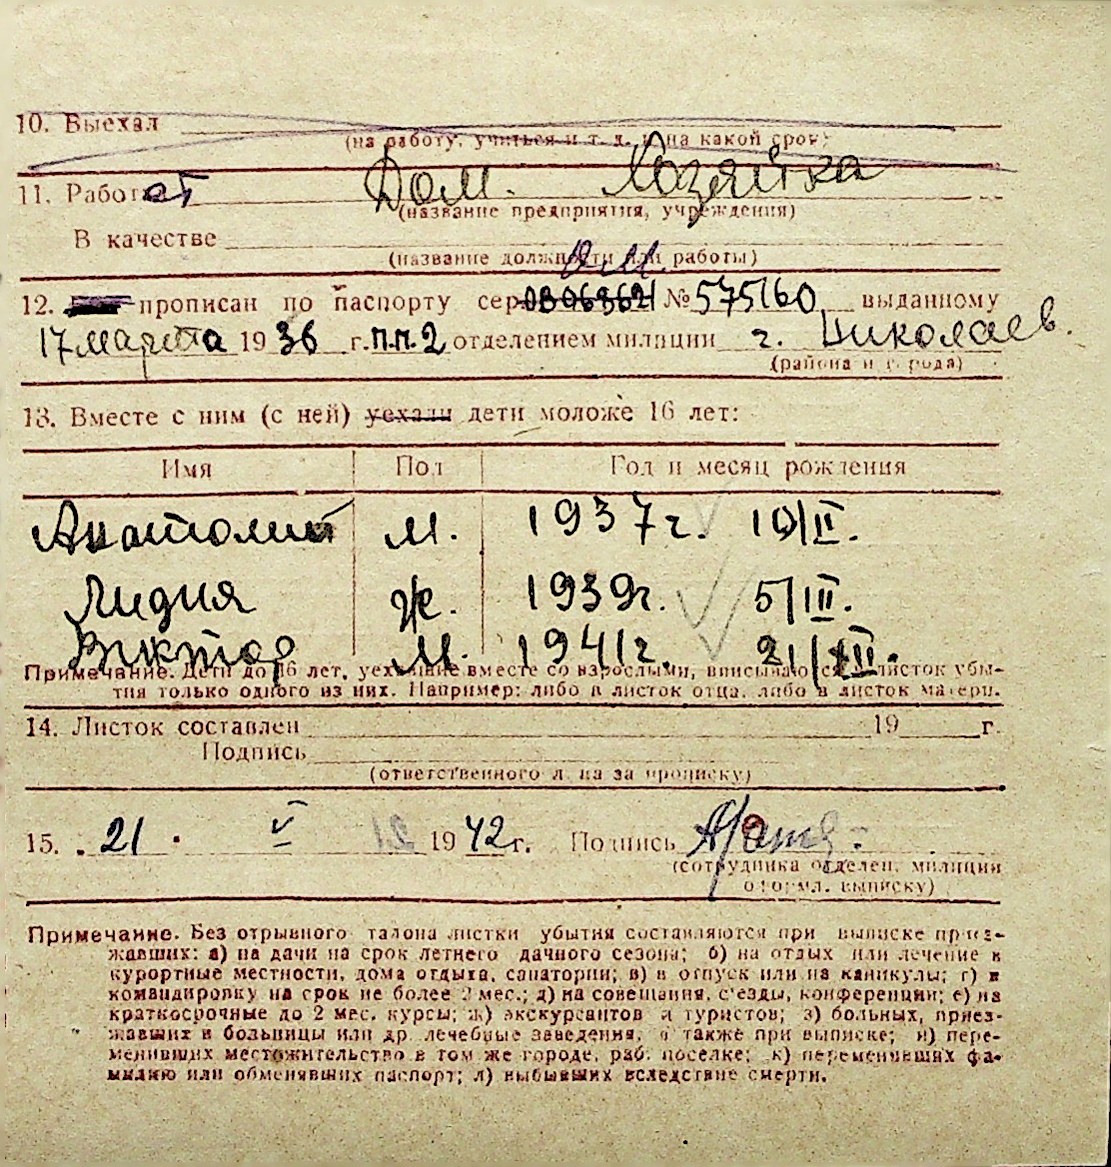 10. Выехал
(на работу, учиться и т. д. и на какой срок)
11. Работает Дом. Хозяйка
(название предприятия, учреждения)
В качестве
(название должности или работы)
12. прописан по паспорту сер. №575160 выданному
17 марта 1936 г. п.п.2 отделением милиции г. Николаев.
(района и города)
13. Вместе с ним (с ней) уехали дети моложе 16 лет:
Имя Пол Год и месяц рождения
Анатолий м. 1937г. 10/II.
Лидия ж. 1939г. 5/III.
Виктор м. 1941г. 21/III.
Примечание. Дети до 16 лет, уехавшие вместе со взрослыми, вписываются в листок убы-
тия только одного из них. Например: либо в листок отца, либо в листок матери.
14. Листок составлен 19 г.
Подпись
(ответственного лица за прописку)
15. 21. V 1942г. Подпись
(сотрудника отделен. милиции
оформл. выписку)
Примечание. Без отрывного талона листки убытия составляются при выписке приез-
жавших: а) на дачи на срок летнего дачного сезона; б) на отдых или лечение в
курортные местности, дома отдыха, санатории; в) в отпуск или на каникулы; г) в
командировку на срок не более 2 мес.; д) на совещания, с'езды, конференции; е) на
краткосрочные до 2 мес. курсы; ж) экскурсантов и туристов; з) больных, приез-
жавших в больницы или др. лечебные заведения, а также при выписке; и) пере-
менивших местожительство в том же городе, раб. поселке; к) переменивших фа-
милию или обменявших паспорт; л) выбывших вследствие смерти.